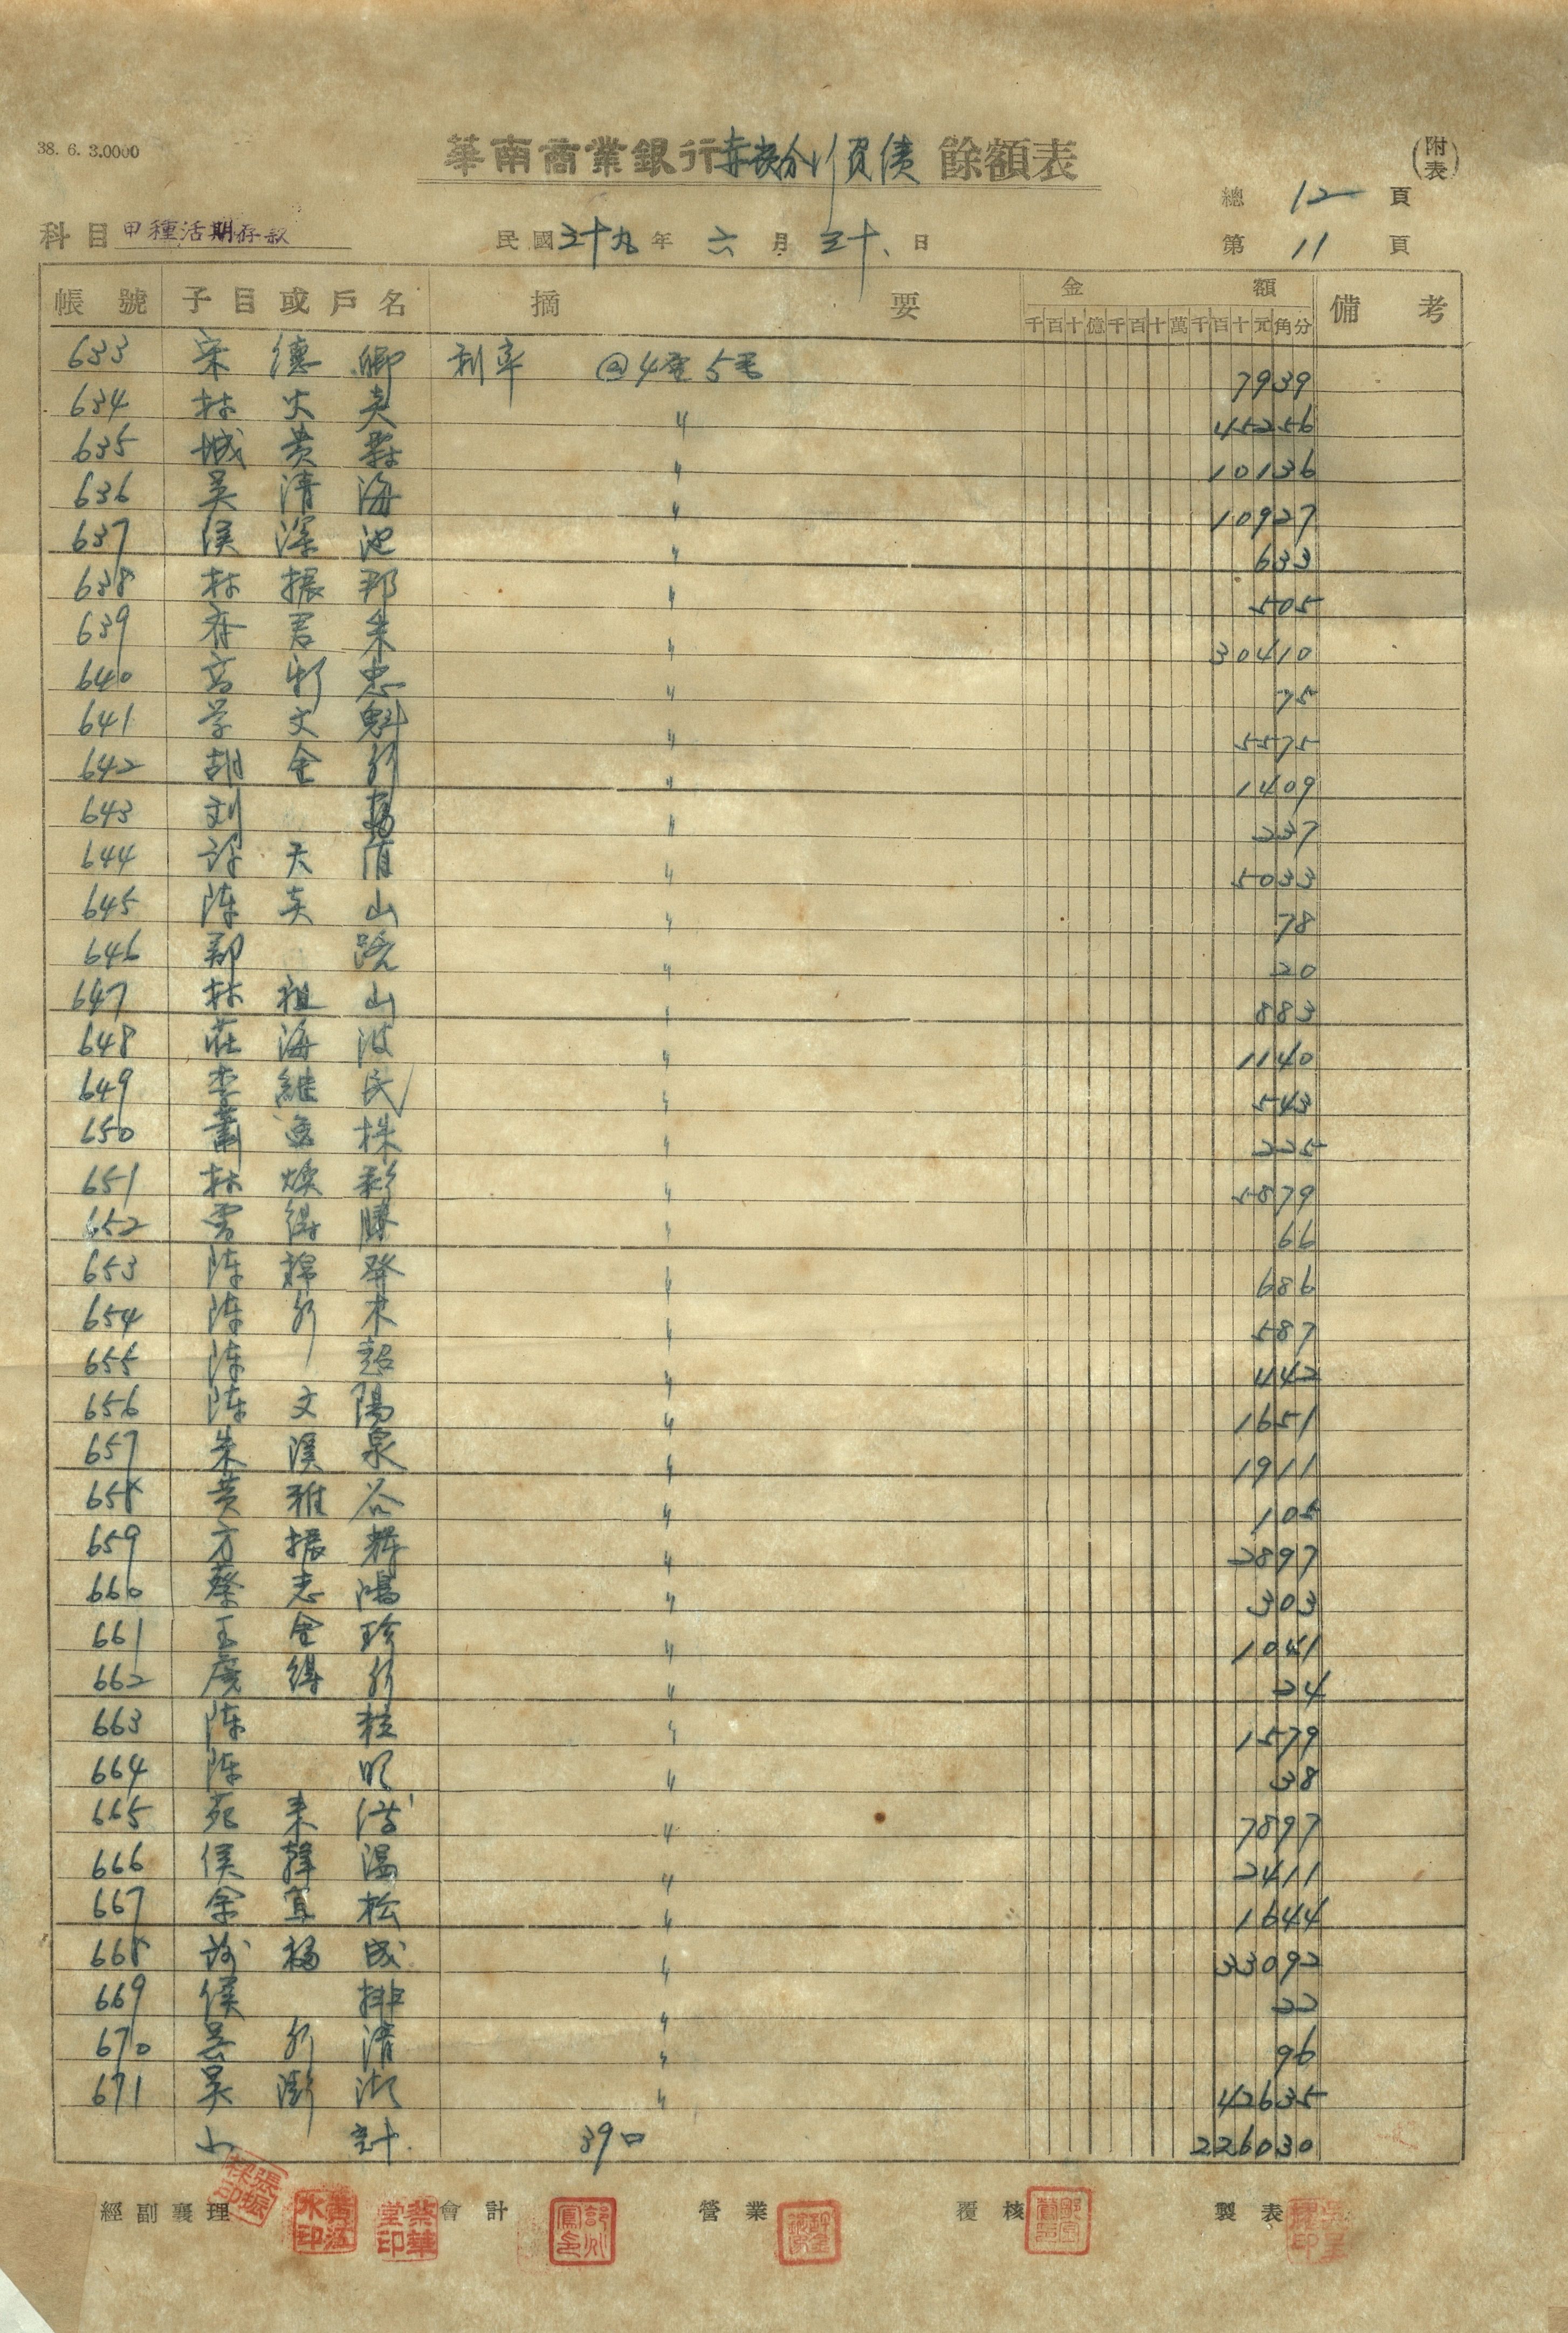 38. 6. 3.0000
華南商業銀行赤崁分行資債餘額表
(附表)
總 12 頁
科目 甲種活期存款 民國三十九年 六月 三十日 第 11 頁
帳號 子目或戶名 摘要 金額 備考
千百十億千百十萬千百十元角分
633 宋德卿 利率 @4厘5毛 7939
634 林火炎 〃 45256
635 城貴 〃 10136
636 吳清海 〃 10927
637 侯深池 〃 633
638 林振邦 〃 505
639 君 〃 30410
640 高新忠 〃 75
641 文魁 〃 5575
642 胡金 〃 1409
643 刘 〃 237
644 許天 〃 5033
645 陈英山 〃 78
646 鄭 〃 20
647 林祖山 〃 883
648 莊海波 〃 1140
649 李維民 〃 543
650 蕭 株 〃 225
651 林煥彩 〃 5879
652 得勝 〃 66
653 陈 発 〃 686
654 陈 木 〃 587
655 陈 〃 442
656 陈文陽 〃 1651
657 朱溪泉 〃 1911
658 黄雅谷 〃 105
659 方振輝 〃 2897
660 蔡志鴻 〃 303
661 王金珍 〃 1041
662 得 〃 24
663 陈 〃 1579
664 陈明 〃 38
665 來 〃 7897
666 侯 温 〃 2411
667 余宜松 〃 1644
668 福成 〃 33092
669 侯排 〃 22
670 清 〃 96
671 吴澎湖 〃 42635
小計 39口 226030
經副襄理 會計 營業 覆核 製表
黃江水印
蔡華堂印